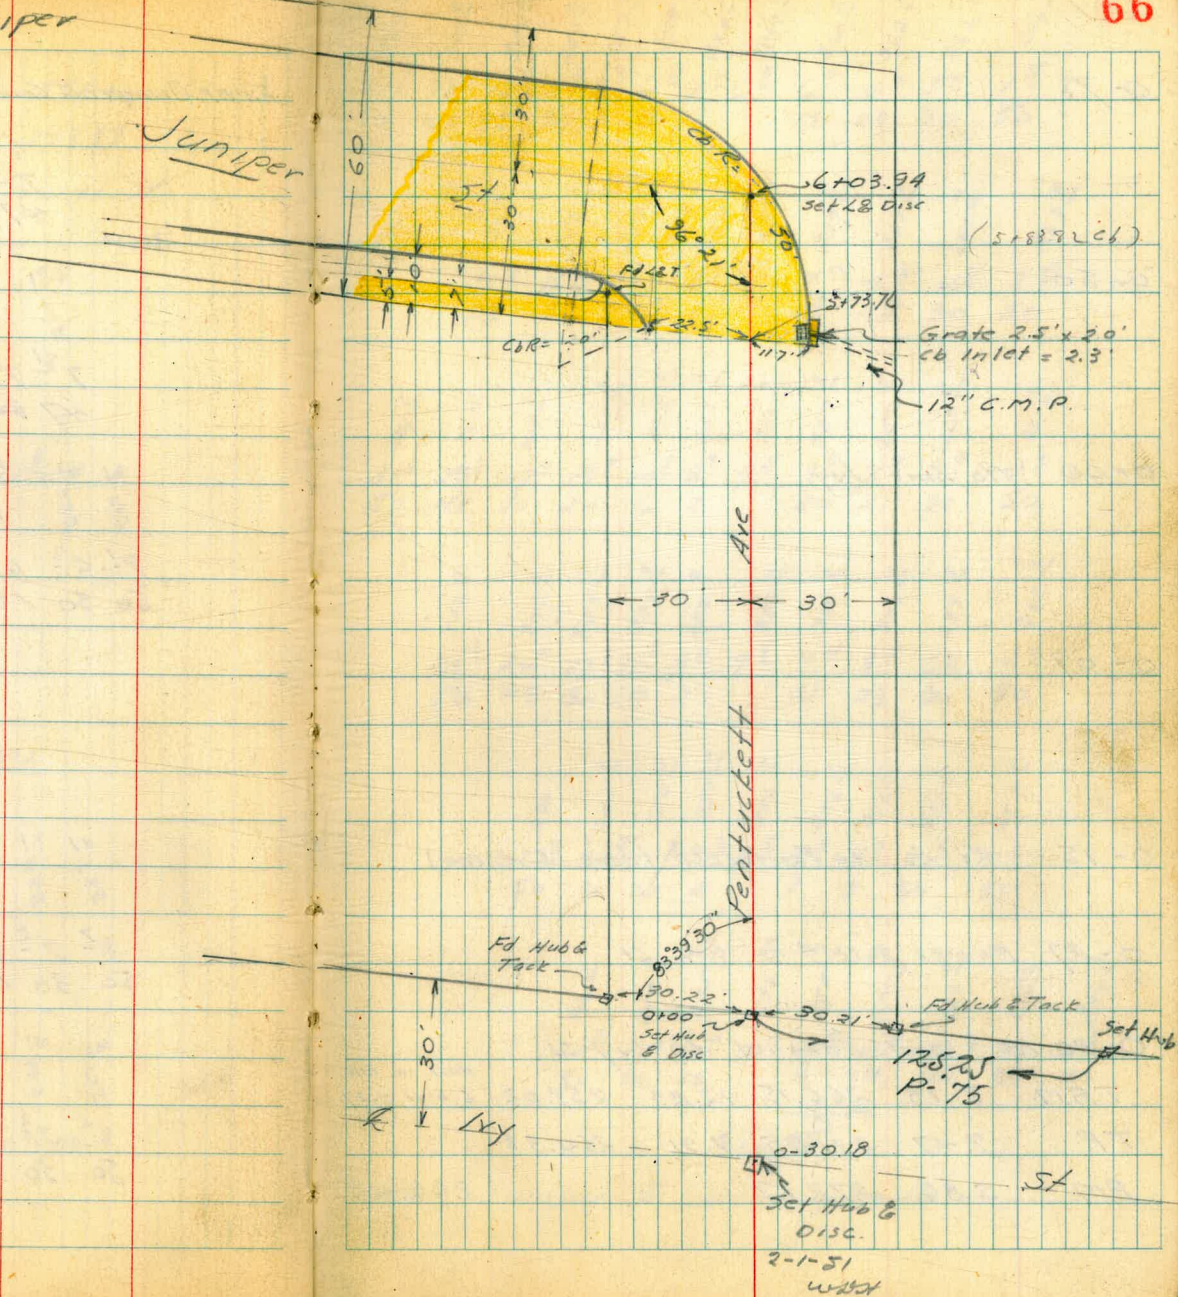 66
iper
Juniper
St
60'
30'
30'
Cb R=
50'
6+03.94
Set L& Disc
(5+83.92 Cb)
96°21'
Fd L&T
5'
10'
7'
5+73.76
22.5'
11.7'
CbR= 20'
Grate 2.5' x 2.0'
Cb Inlet = 2.3'
12" C.M.P.
Ave
30'
30'
Pentuckett
83°39'30"
Fd Hub &
Tack
30.22'
0+00
Set Hub
& Disc
30.21'
Fd Hub & Tack
Set Hub
125.25
P-75
30'
Ivy
0-30.18
St
Set Hub &
Disc.
2-1-51